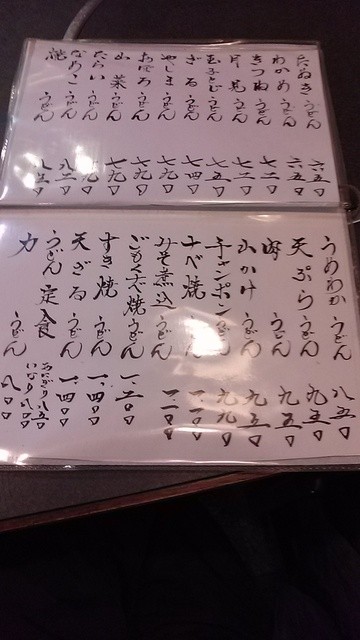 たぬきうどん 六五〇
わかめうどん 六五〇
きつねうどん 七二〇
月見うどん 七二〇
玉子とじうどん 七五〇
ざるうどん 七四〇
やしまうどん 七九〇
おぼろうどん 七九〇
山菜うどん 七九〇
たらいうどん
なめこうどん 八二〇
うめわかうどん 八五〇
天ぷらうどん 九五〇
うどん 九五〇
山かけうどん 九五〇
チャンポンうどん 九九〇
ナベ焼うどん 一、一〇〇
みそ煮込うどん 一、一〇〇
ごもくナベ焼うどん 一、二〇〇
すき焼うどん 一、四〇〇
天ざるうどん 一、四〇〇
うどん定食 おにぎり 八五〇
いなり 八五〇
力うどん 八〇〇